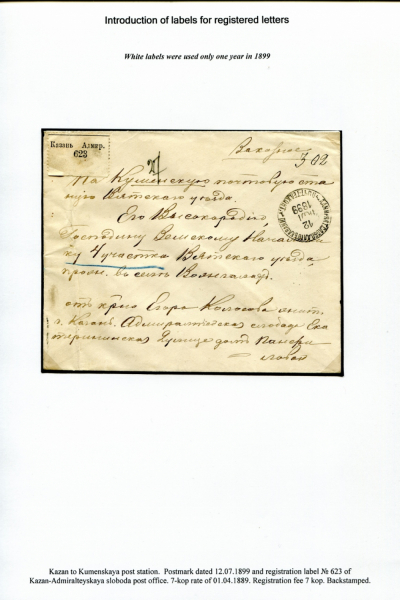 Introduction of labels for registered letters
White labels were used only one year in 1899
Казань Адмир.
623
Заказное
302
На Куменскую почтовую ста
нцію Вятскаго уезда.
Его Высокородію,
Господину Земскому Началь
ку 4 участка Вятскаго уезда,
въ
отъ Егора Колосова
г. Казань. Адмиралтейская слобода Ека
терининская улица домъ
12
1899
Kazan to Kumenskaya post station. Postmark dated 12.07.1899 and registration label № 623 of
Kazan-Admiralteyskaya sloboda post office. 7-kop rate of 01.04.1889. Registration fee 7 kop. Backstamped.